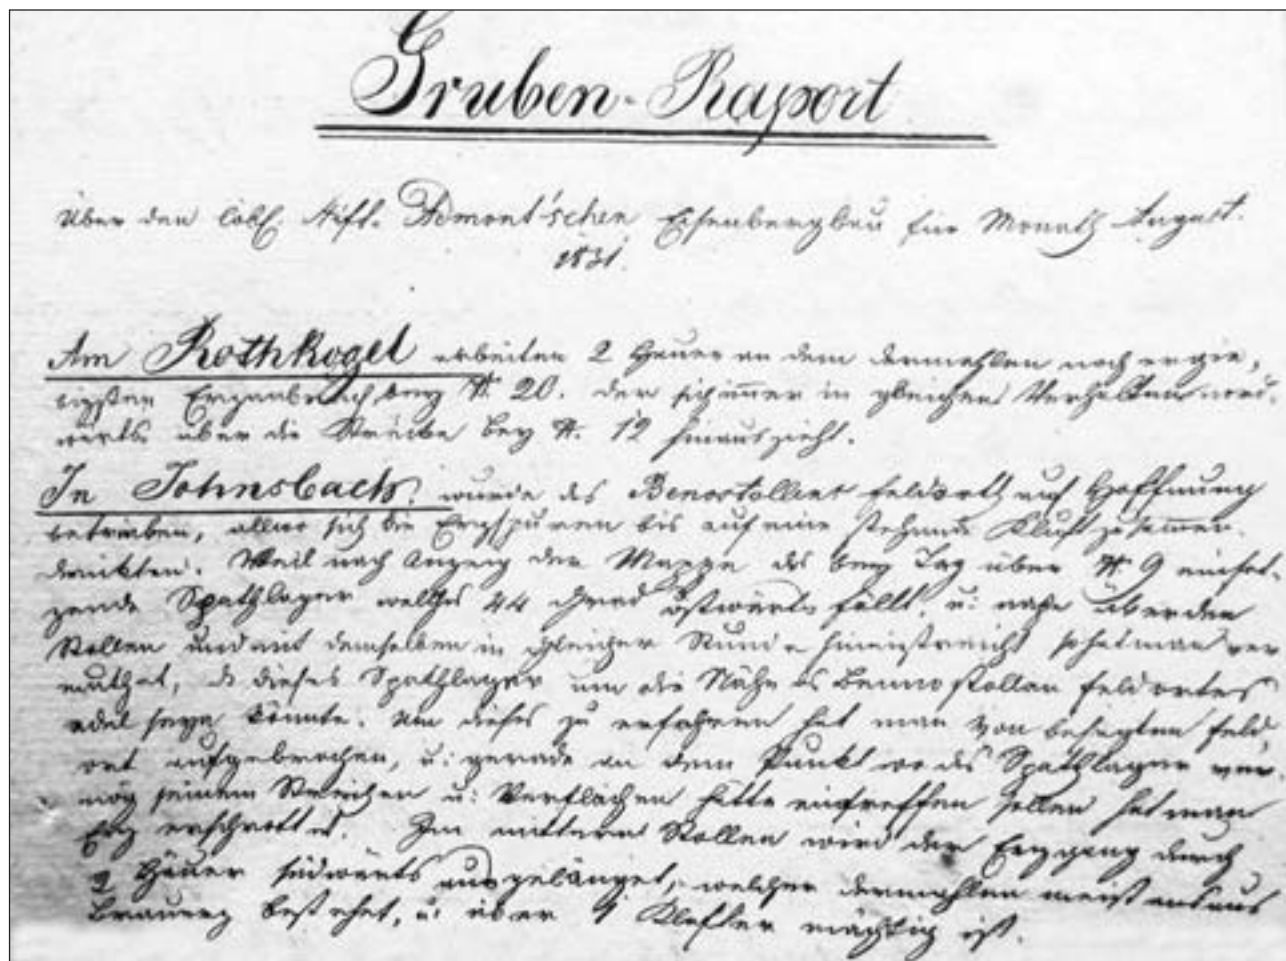 Gruben-Raport
Über den löbl. Stift. Admont'schen Eisenbergbau für Monath August.
1831.
Am Rothkogel arbeiten 2 Häuer an dem dermahlen noch ergie,
bigsten Erzanbruch bey N. 20. der sich immer in gleichen Verhalten nord,
wärts über die Strecke bey N. 12 hinauszieht.
In Johnsbach, wurde das Bennostollens Feldorth auf Hoffnung
betrieben, allwo sich die Erzspuren bis auf eine stehende Kluft zusammen
drückten. Weil nach Anzeig der Mappe das bey Tag über N 9 einset-
zende Spathlager welches 44 Grad ostwärts fällt, u: nahe über den
Stollen und mit demselben in gleicher Stunde hineinstreicht so hat man ver
muthet, dß dieses Spathlager um die Nähe des Bennostollen Feldortes
edel seyn könnte. Um dieses zu erfahren hat man von besagten Feld,
ort aufgebrochen, u: gerade an dem Punkt wo das Spathlager ver
mög seinem Streichen u: Verflächen hätte eintreffen sollen hat man
Erz erschrottet. Im mittern Stollen wird der Erzgang durch
2 Häuer südwärts ausgelänget, welcher dermahlen meistens aus
Brauerz bestehet, u: über 1 Klafter mächtig ist.